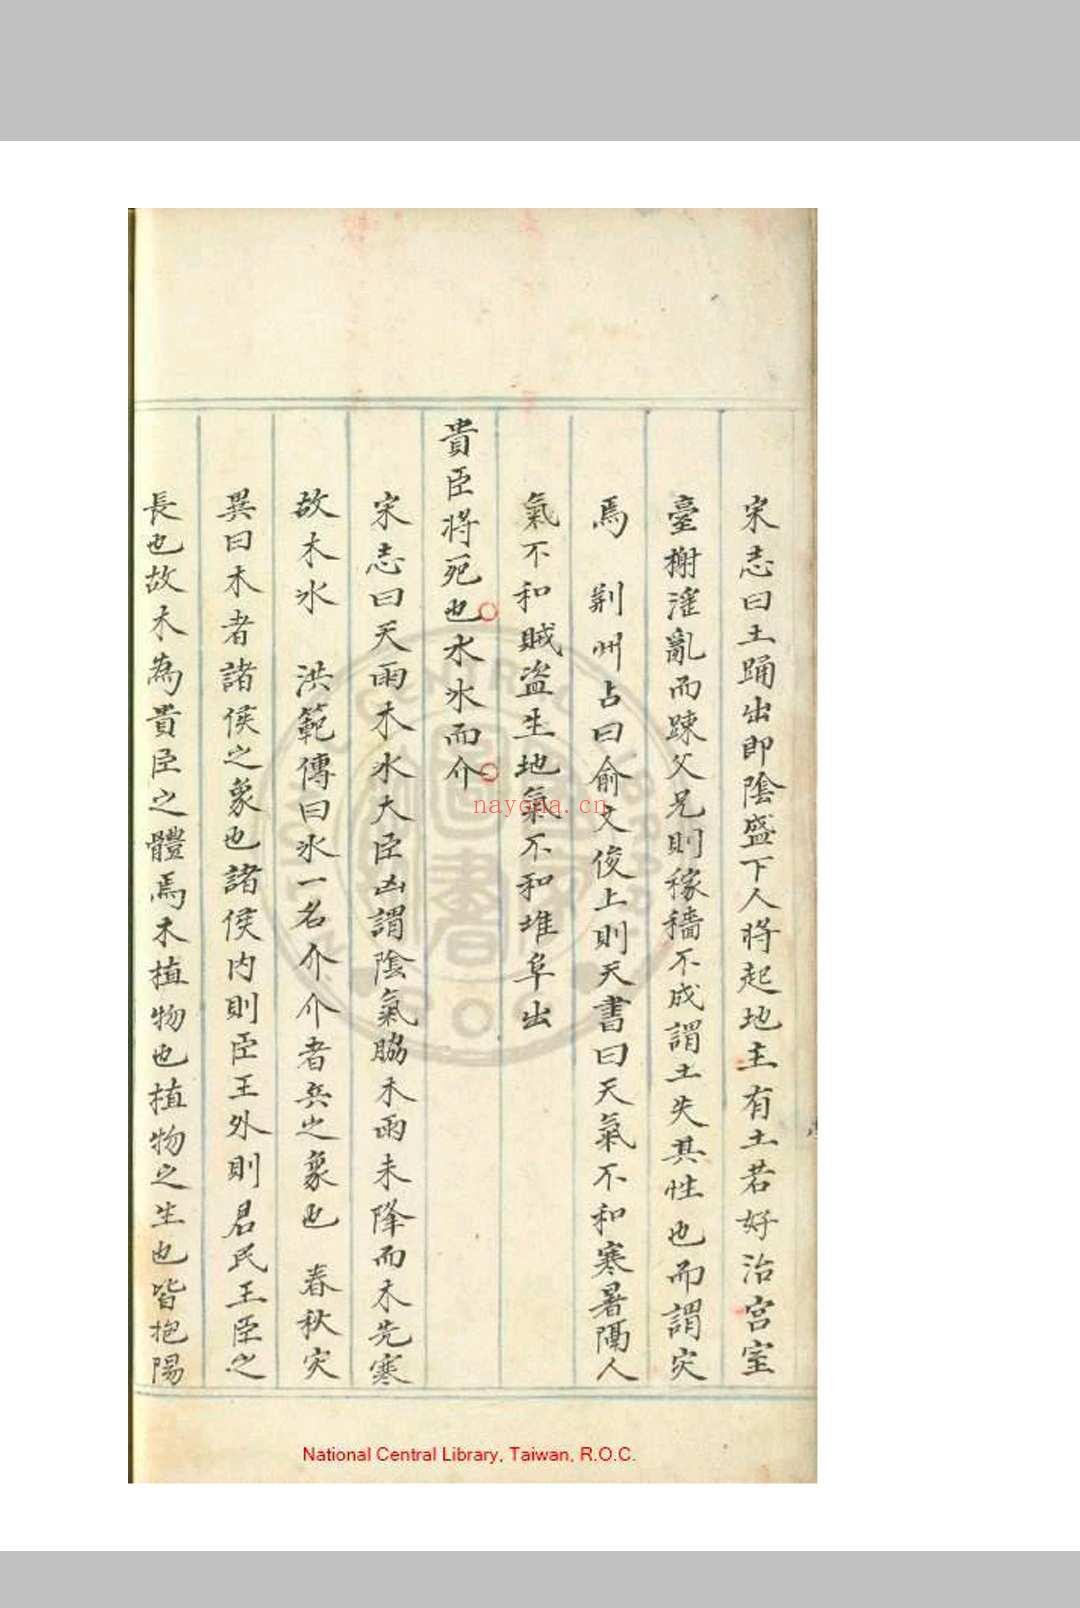 宋志曰土踊出即陰盛下人將起地主有土若好治宮室
臺榭滛亂而踈父兄則稼穡不成謂土失其性也而謂灾
焉　荆州占曰俞文俊上則天書曰天氣不和寒暑隔人
氣不和賊盗生地氣不和堆阜出
貴臣將死也水氷而介
宋志曰天雨木氷大臣凶謂陰氣脇木雨未降而木先寒
故木氷　洪範傳曰氷一名介介者兵之象也　春秋灾
異曰木者諸侯之象也諸侯内則臣王外則君民王臣之
長也故木為貴臣之體焉木植物也植物之生也皆抱陽
nayona.cn
National Central Library, Taiwan, R.O.C.